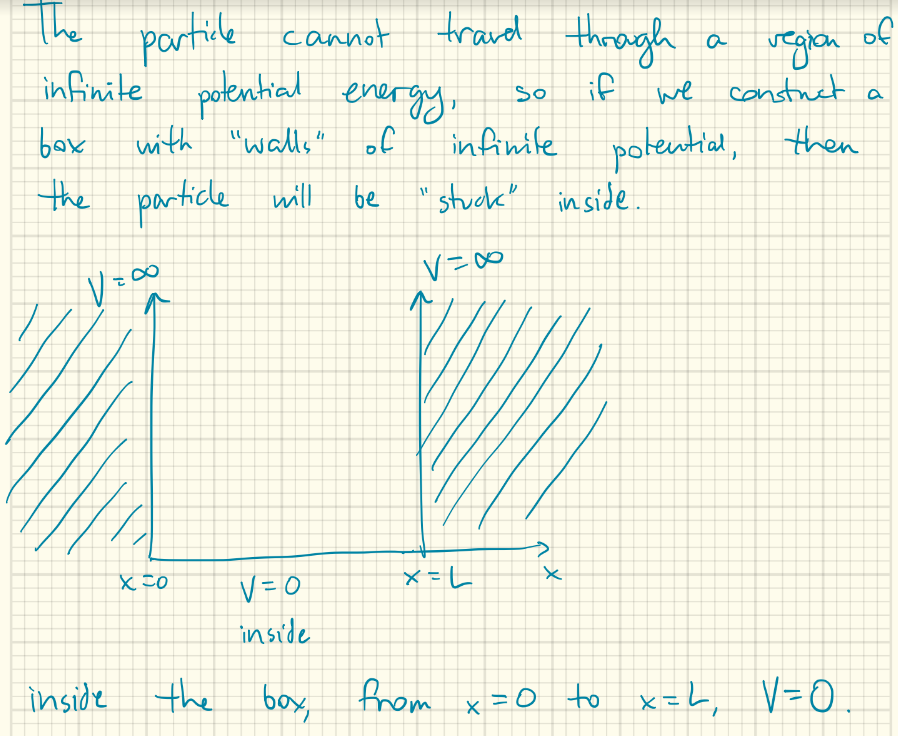 The particle cannot travel through a region of
infinite potential energy, so if we construct a
box with "walls" of infinite potential, then
the particle will be "stuck" inside.
V=∞ V=∞
x=0 V=0 x=L x
inside
inside the box, from x=0 to x=L, V=0.